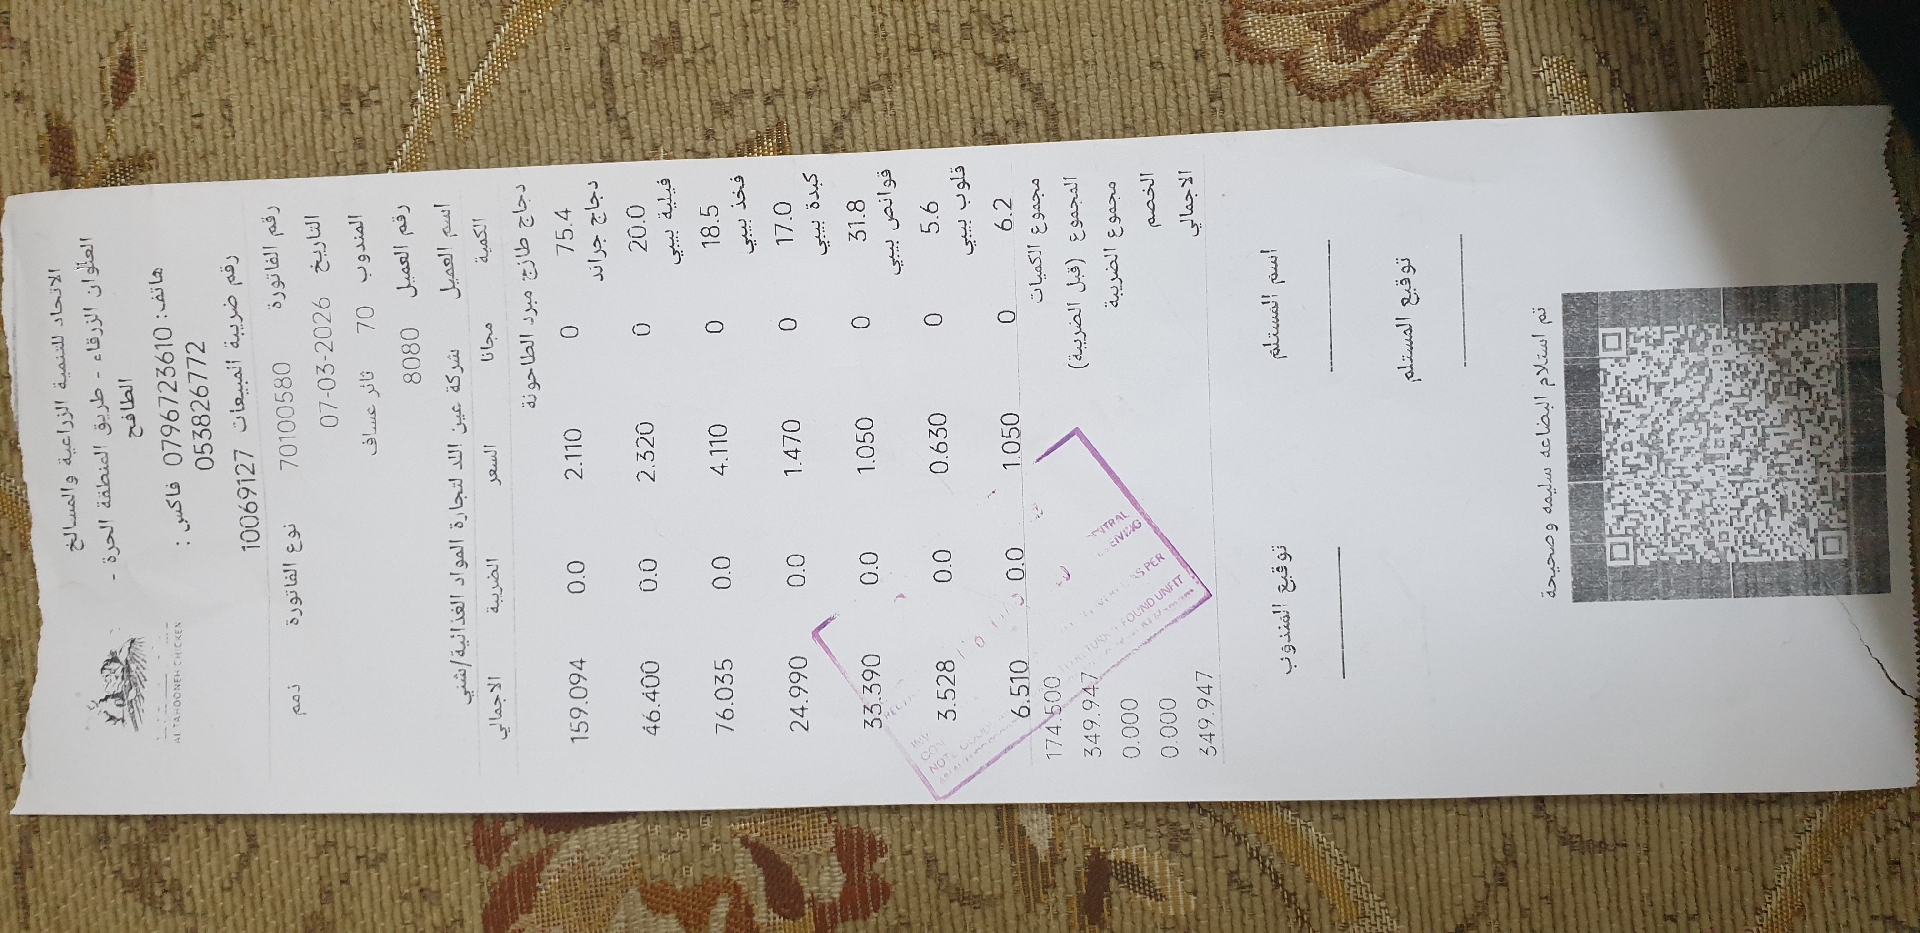 الاتحاد للتنمية الزراعية والمسالخ
العنوان الزرقاء - طريق المنطقة الحرة -
الطافح
هاتف: 0796723610 فاكس :
053826772
رقم ضريبة المبيعات 10069127
AL TAHOONEH CHICKEN
رقم الفاتورة 70100580 نوع الفاتورة ذمم
التاريخ 07-03-2026
المندوب 70 ثائر عساف
رقم العميل 8080
اسم العميل شركة عين اللد لتجارة المواد الغذائية/شني
الكمية مجانا السعر الضريبة الاجمالي
دجاج طازج مبرد الطاحونة
75.4 0 2.110 0.0 159.094
دجاج جراند
20.0 0 2.320 0.0 46.400
فيلية بيبي
18.5 0 4.110 0.0 76.035
فخذ بيبي
17.0 0 1.470 0.0 24.990
كبدة بيبي
31.8 0 1.050 0.0 33.390
قوانص بيبي
5.6 0 0.630 0.0 3.528
قلوب بيبي
6.2 0 1.050 0.0 6.510
مجموع الكميات 174.500
المجموع (قبل الضريبة) 349.947
مجموع الضريبة 0.000
الخصم 0.000
الاجمالي 349.947
اسم المستلم توقيع المندوب
توقيع المستلم
تم استلام البضاعه سليمه وصحيحة
AS PER
FOUND UNFIT